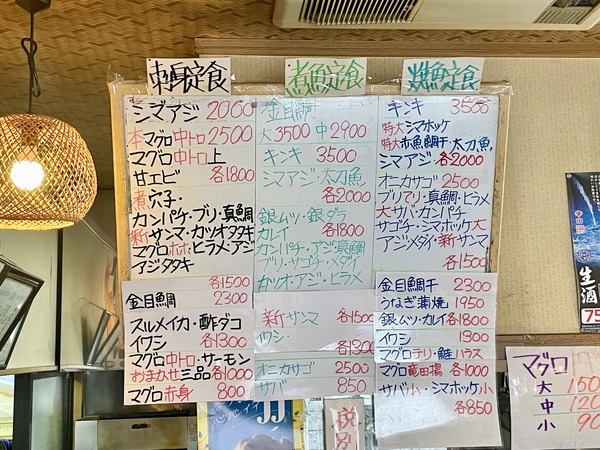 刺身定食
シマアジ 2000
本マグロ中トロ 2500
マグロ中トロ上
甘エビ 各1800
煮穴子・
カンパチ・ブリ・真鯛
新サンマ・カツオタタキ
マグロホホ・ヒラメ・アジ
イジタタキ
各1500
金目鯛 2300
スルメイカ・酢ダコ
イワシ 各1300
マグロ中トロ・サーモン
おまかせ三品 各1000
マグロ赤身 800
煮魚定食
金目鯛
大3500 中2900
キンキ 3500
シマアジ・太刀魚
各2000
銀ムツ・銀ダラ
カレイ 各1800
カンパチ・アジ・真鯛
ブリ・サゴチ・メダイ
カツオ・アジ・ヒラメ
新サンマ 各1500
イワシ・
各1300
オニカサゴ 2500
サバ 850
焼魚定食
キンキ 3500
特大シマホッケ
特大赤魚鯛干・太刀魚
シマアジ 各2000
オニカサゴ 2500
ブリマリ・真鯛・ヒラメ
大サバ・カンパチ
サゴチ・シマホッケ大
アジ・メダイ・新サンマ
各1500
金目鯛干 2300
うなぎ蒲焼 1950
銀ムツ・カレイ 各1800
イワシ 1300
マグロテリ・鮭ハラス
マグロ竜田揚 各1000
サバ小・シマホッケ小
各850
税別
生酒
75
マグロ
大 150
中 120
小 90